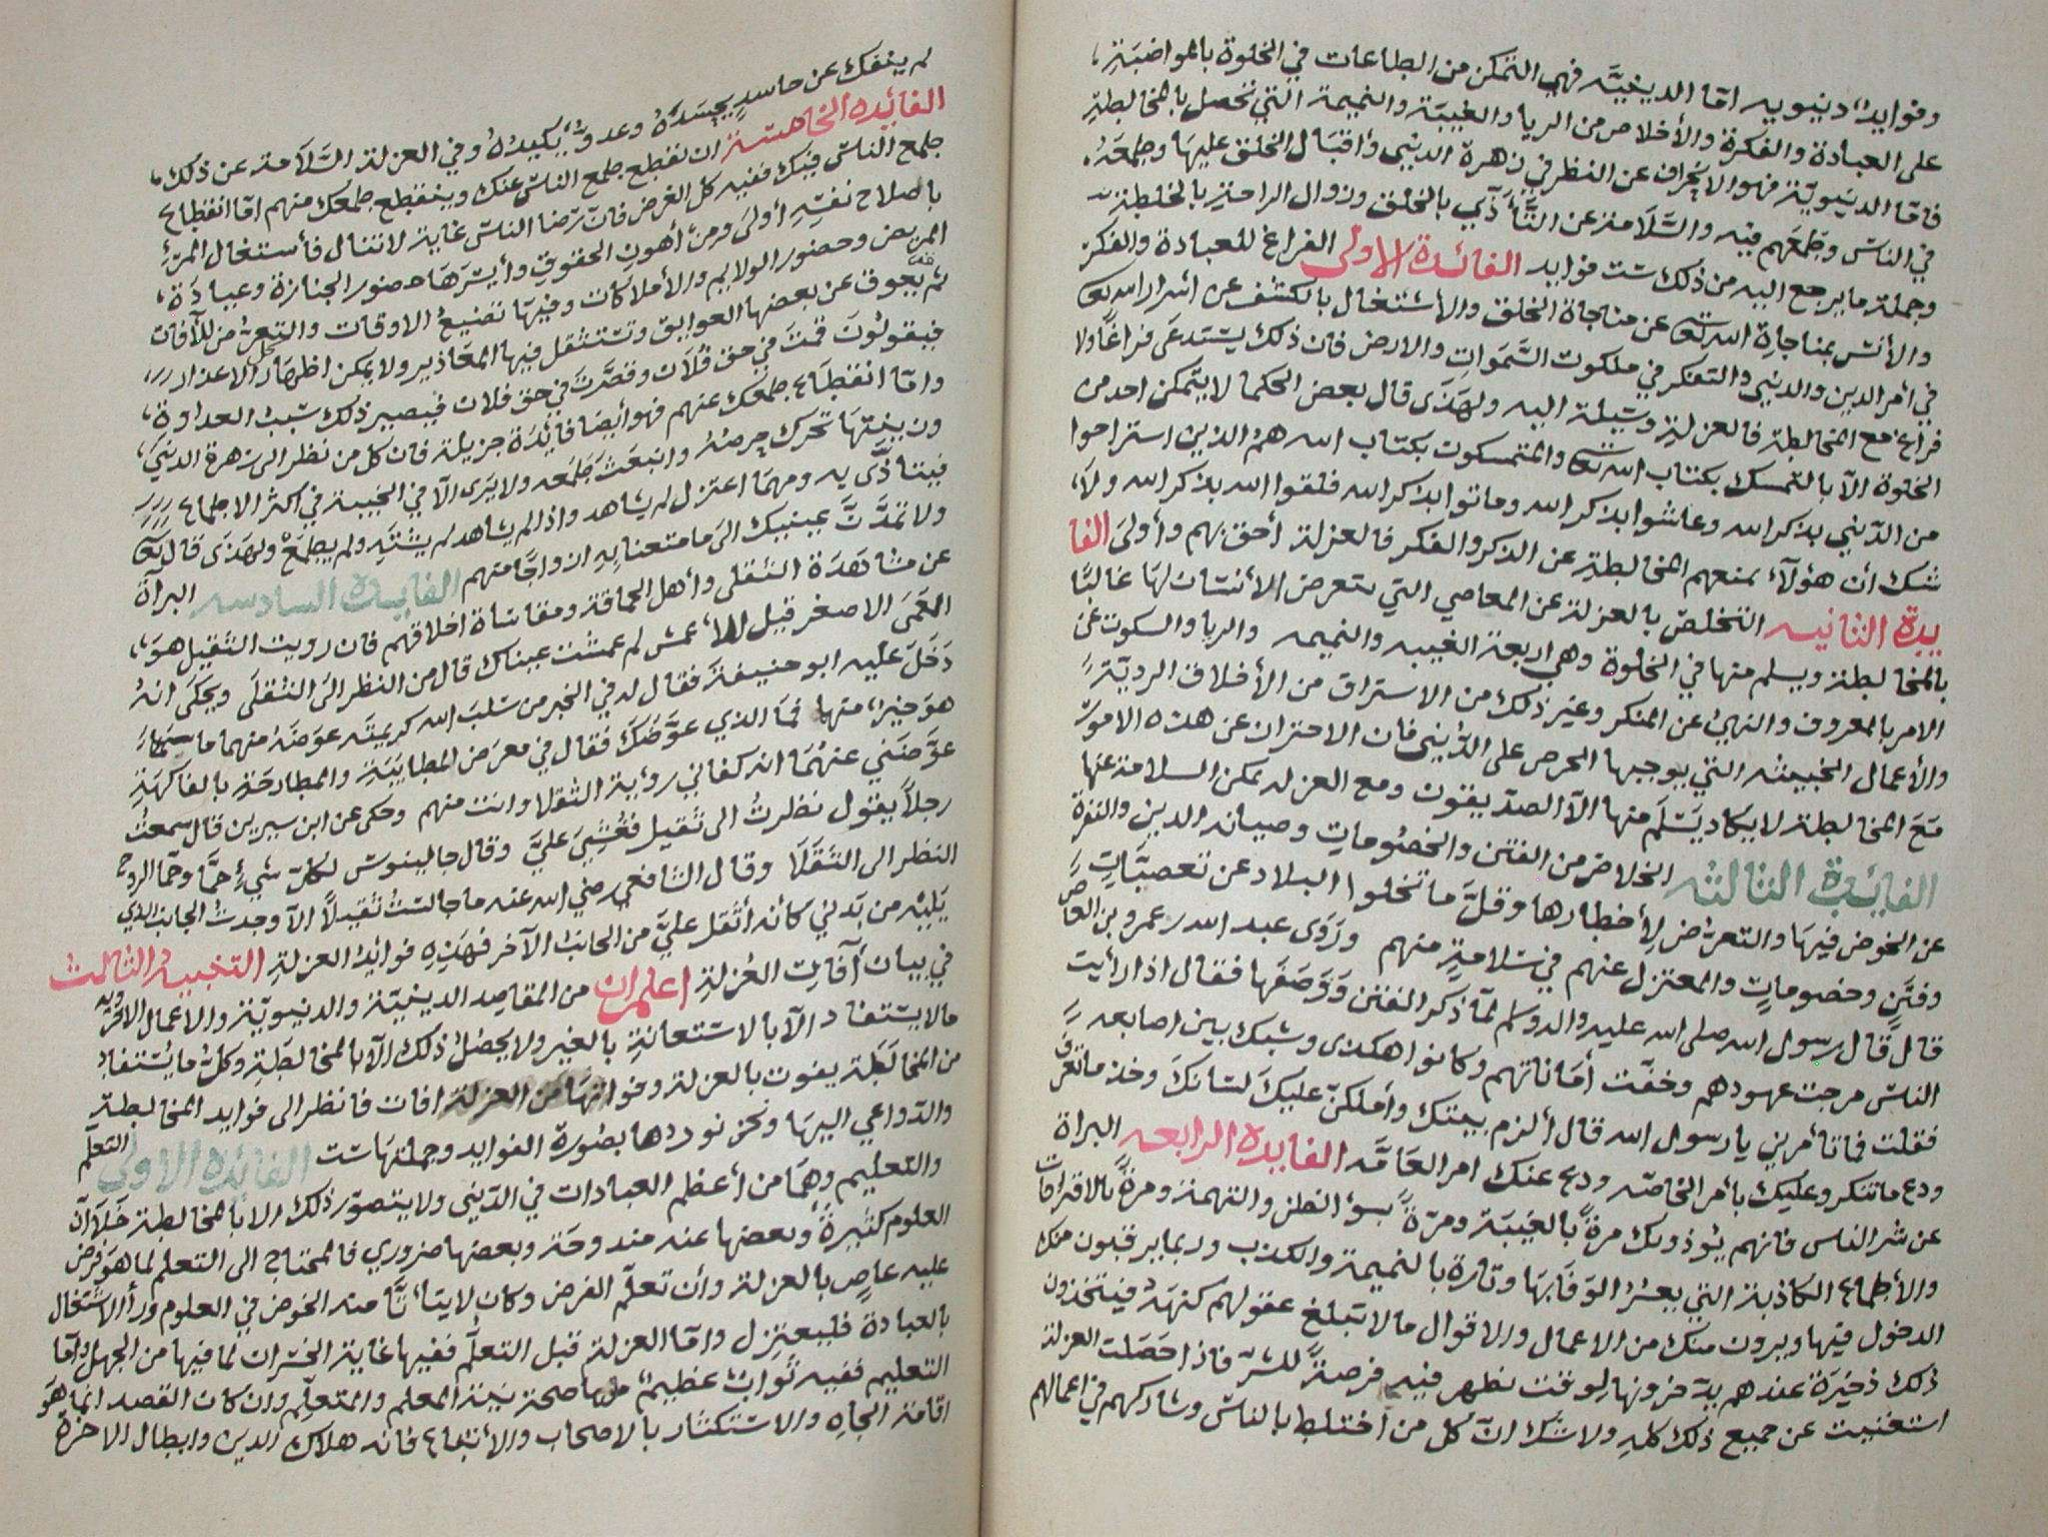 وفوايد دينويه امّا الدينيّه فهي التمكن من الطاعات في الخلوة بالمواضبة
على العبادة والفكرة والأخلاص من الريا والغيبة والنميمة التي تحصل بالمخالطة
فامّا الدنيويّة فهو الانحراف عن النظر في زهرة الدنيى وأقبال الخلق عليها وطمعه
في الناس وطمعهم فيه والسّلامة عن التأذّي بالخلق وزوال الراحة بالخلطة
وجملة ما يرجع اليه من ذلك ست فوايد الفائدة الاولى الفراغ للعبادة والفكر
والأنس بمناجاة الله تعى عن مناجاة الخلق والأشتغال بالكشف عن أسرار الله تعى
في أمر الدين والدنيى والتفكر في ملكوت السّموات والارض فان ذلك يستدعى فراغاً ولا
فراغ مع المخالطة فالعزلة وسيلة اليه ولهذى قال بعض الحكما لا يتمكن احد من
الخلوة الآ بالتمسك بكتاب الله تعى والمتمسكون بكتاب الله هم الذين استراحوا
من الدّنيى بذكر الله وعاشوا بذكر الله وماتوا بذكر الله فلقوا الله بذكر الله ولا
شك أن هؤلآء تمنعهم المخالطة عن الذكر والفكر فالعزلة أحق بهم وأولى الفا
يدة الثانيه التخلص بالعزلة عن المعاصي التي يتعرض الأنسان لها غالبًا
بالمخالطة ويسلم منها في الخلوة وهي اربعة الغيبه والنميمه والريا والسكوت عن
الامر بالمعروف والنهي عن المنكر وغير ذلك من الاستراق من الأخلاق الرديّة
والأعمال الخبيثه التي يوجبها الحرص على الدّنيى فان الاحتراز عن هذه الامور
مع المخالطة لا يكاد يسلم منها الآ الصدّيقون ومع العزله يمكن السلامة عنها
الفائدة الثالثه الخلاص من الفتن والخصومات وصيانه الدين والنفس
عن الخوض فيها والتعرّض لأخطارها وقلّ ما تخلوا البلاد عن تعصبات
وفتن وخصومات والمعتزل عنهم في سلامة منهم وروى عبد الله بن عمرو بن العاص
قال قال رسول الله صلى الله عليه واله وسلم لمّا ذكر الفتن ووصفها فقال اذا رأيت
الناس مرجت عهودهم وخفّت أماناتهم وكانوا هكذى وشبك بين اصابعه
فقلت فما تأمرني يا رسول الله قال ألزم بيتك وأملك عليك لسانك وخذ ما تعرف
ودع ما تنكر وعليك بأمر الخاصّه ودع عنك امر العامّه الفايده الرابعه البراة
عن شر الناس فانهم يؤذونك مرةً بالغيبة ومرّةً بسؤ الظن والتهمة ومرةً بالاقتراحات
والأطماع الكاذبة التي يعسر الوفا بها وتارة بالنميمة والكذب وربما يرقبون منك
الدخول فيها ويرون منك من الاعمال والاقوال ما لا تبلغ عقولهم كنهه فيتخذون
ذلك ذخيرة عندهم يدّخرونها لوقت تظهر فيه فرصةً للشرّ فاذا حصلت العزلة
استغنيت عن جميع ذلك كله ولا شك انّ كل من أختلط بالناس وشاركهم في اعمالهم
لم ينفك عن حاسد يحسده وعدوّ يكيده وفي العزلة السّلامة عن ذلك
الفائده الخامسة ان تنقطع طمع الناس عنك وينقطع طمعك منهم امّا انقطاع
طمع الناس فيك ففيه كل الغرض فان رضا الناس غاية لا تنال فأستغال المرء
بأصلاح نفسه أولى ومن أهون الحقوق وأيسرها حضور الجنازة وعيادة
المريض وحضور الولايم والأملاكات وفيها تضييع الاوقات والتعرّض للآفات
ثم يعوق عن بعضها العوايق وتستثقل فيها المعاذير ولا يمكن اظهار كل الاعذار
فيقولون قمت في حق فلان وقصّرت في حق فلان فيصير ذلك سبب العداوة
وامّا انقطاع طمعك عنهم فهو أيضا فائدة جزيلة فان كل من نظر الى زهرة الدنيى
وزينتها تحرك حرصه وانبعث طمعه ولا يرى الآ في الخيبة في اكثر الاطماع
فيتاذّى به ومهما اعتزل لم يشاهد واذا لم يشاهد لم يشته ولم يطمع ولهذى قال تعى
ولا تمدّنّ عينيك الى ما متعنا به ازواجًا منهم الفايدة السادسه البراة
عن مشاهدة الثقلى وأهل الحماقة ومقاساة اخلاقهم فان رويت الثقيل هو
العمى الاصغر قيل للأعمش لم عمشت عيناك قال من النظر الى الثقلى ويحكى انه
دخل عليه ابو حنيفة فقال له في الخبر من سلب الله كريمتيه عوضه منهما ما
هو خيرٌ منها فما الذي عوّضك فقال في معرض المطايبة والمطارحة بالفاكهة
عوّضني عنهما انه كفاني رؤية الثقلا وانت منهم وحكى عن ابن سيرين قال سمعت
رجلاً يقول نظرت الى ثقيل فغشي عليّ وقال جالينوس لكلّ شيء حمّا وحمّا الروح
النظر الى الثقلا وقال الشافعي رضي الله عنه ما جالست ثقيلاً الآ وجدت الجانب الذي
يليه من بدني كأنه أثقل عليّ من الجانب الآخر فهذه فوائد العزلة التنبيه الثالث
في بيان آفات العزلة اعلم ان من المقاصد الدينيّة والدنيويّة والاعمال الاخرويه
ما لا يستفاد الآ بالاستعانة بالغير ولا يحصل ذلك الآ بالمخالطة وكل ما يستفاد
من المخالطة يفوت بالعزلة وفواتها من العزلة افات فانظر الى فوايد المخالطة
والدواعي اليها ونحن نوردها بصورة الفوايد وجملتها ست الفائدة الاولى التعلّم
والتعليم وهما من أعظم العبادات في الدّنيى ولا يتصوّر ذلك الا بالمخالطة خلا أنّ
العلوم كثيرةً وبعضها عنه مندوحة وبعضها ضروري فالمحتاج الى التعلم لما هو فرض
عليه عاصٍ بالعزلة وأن تعلّم الفرض وكان لا يتأتّا منه الخوض في العلوم ورأ الاشتغال
بالعبادة فليعتزل وامّا العزلة قبل التعلّم ففيها غاية الخسران لما فيها من الجهل وامّا
التعليم ففيه ثواب عظيمٌ مهما صحة نيّة المعلم والمتعلّم وان كان القصد انما هو
اقامة الجاه والاستكثار بالاصحاب والأتباع فانه هلاك الدين وابطال الاخرة